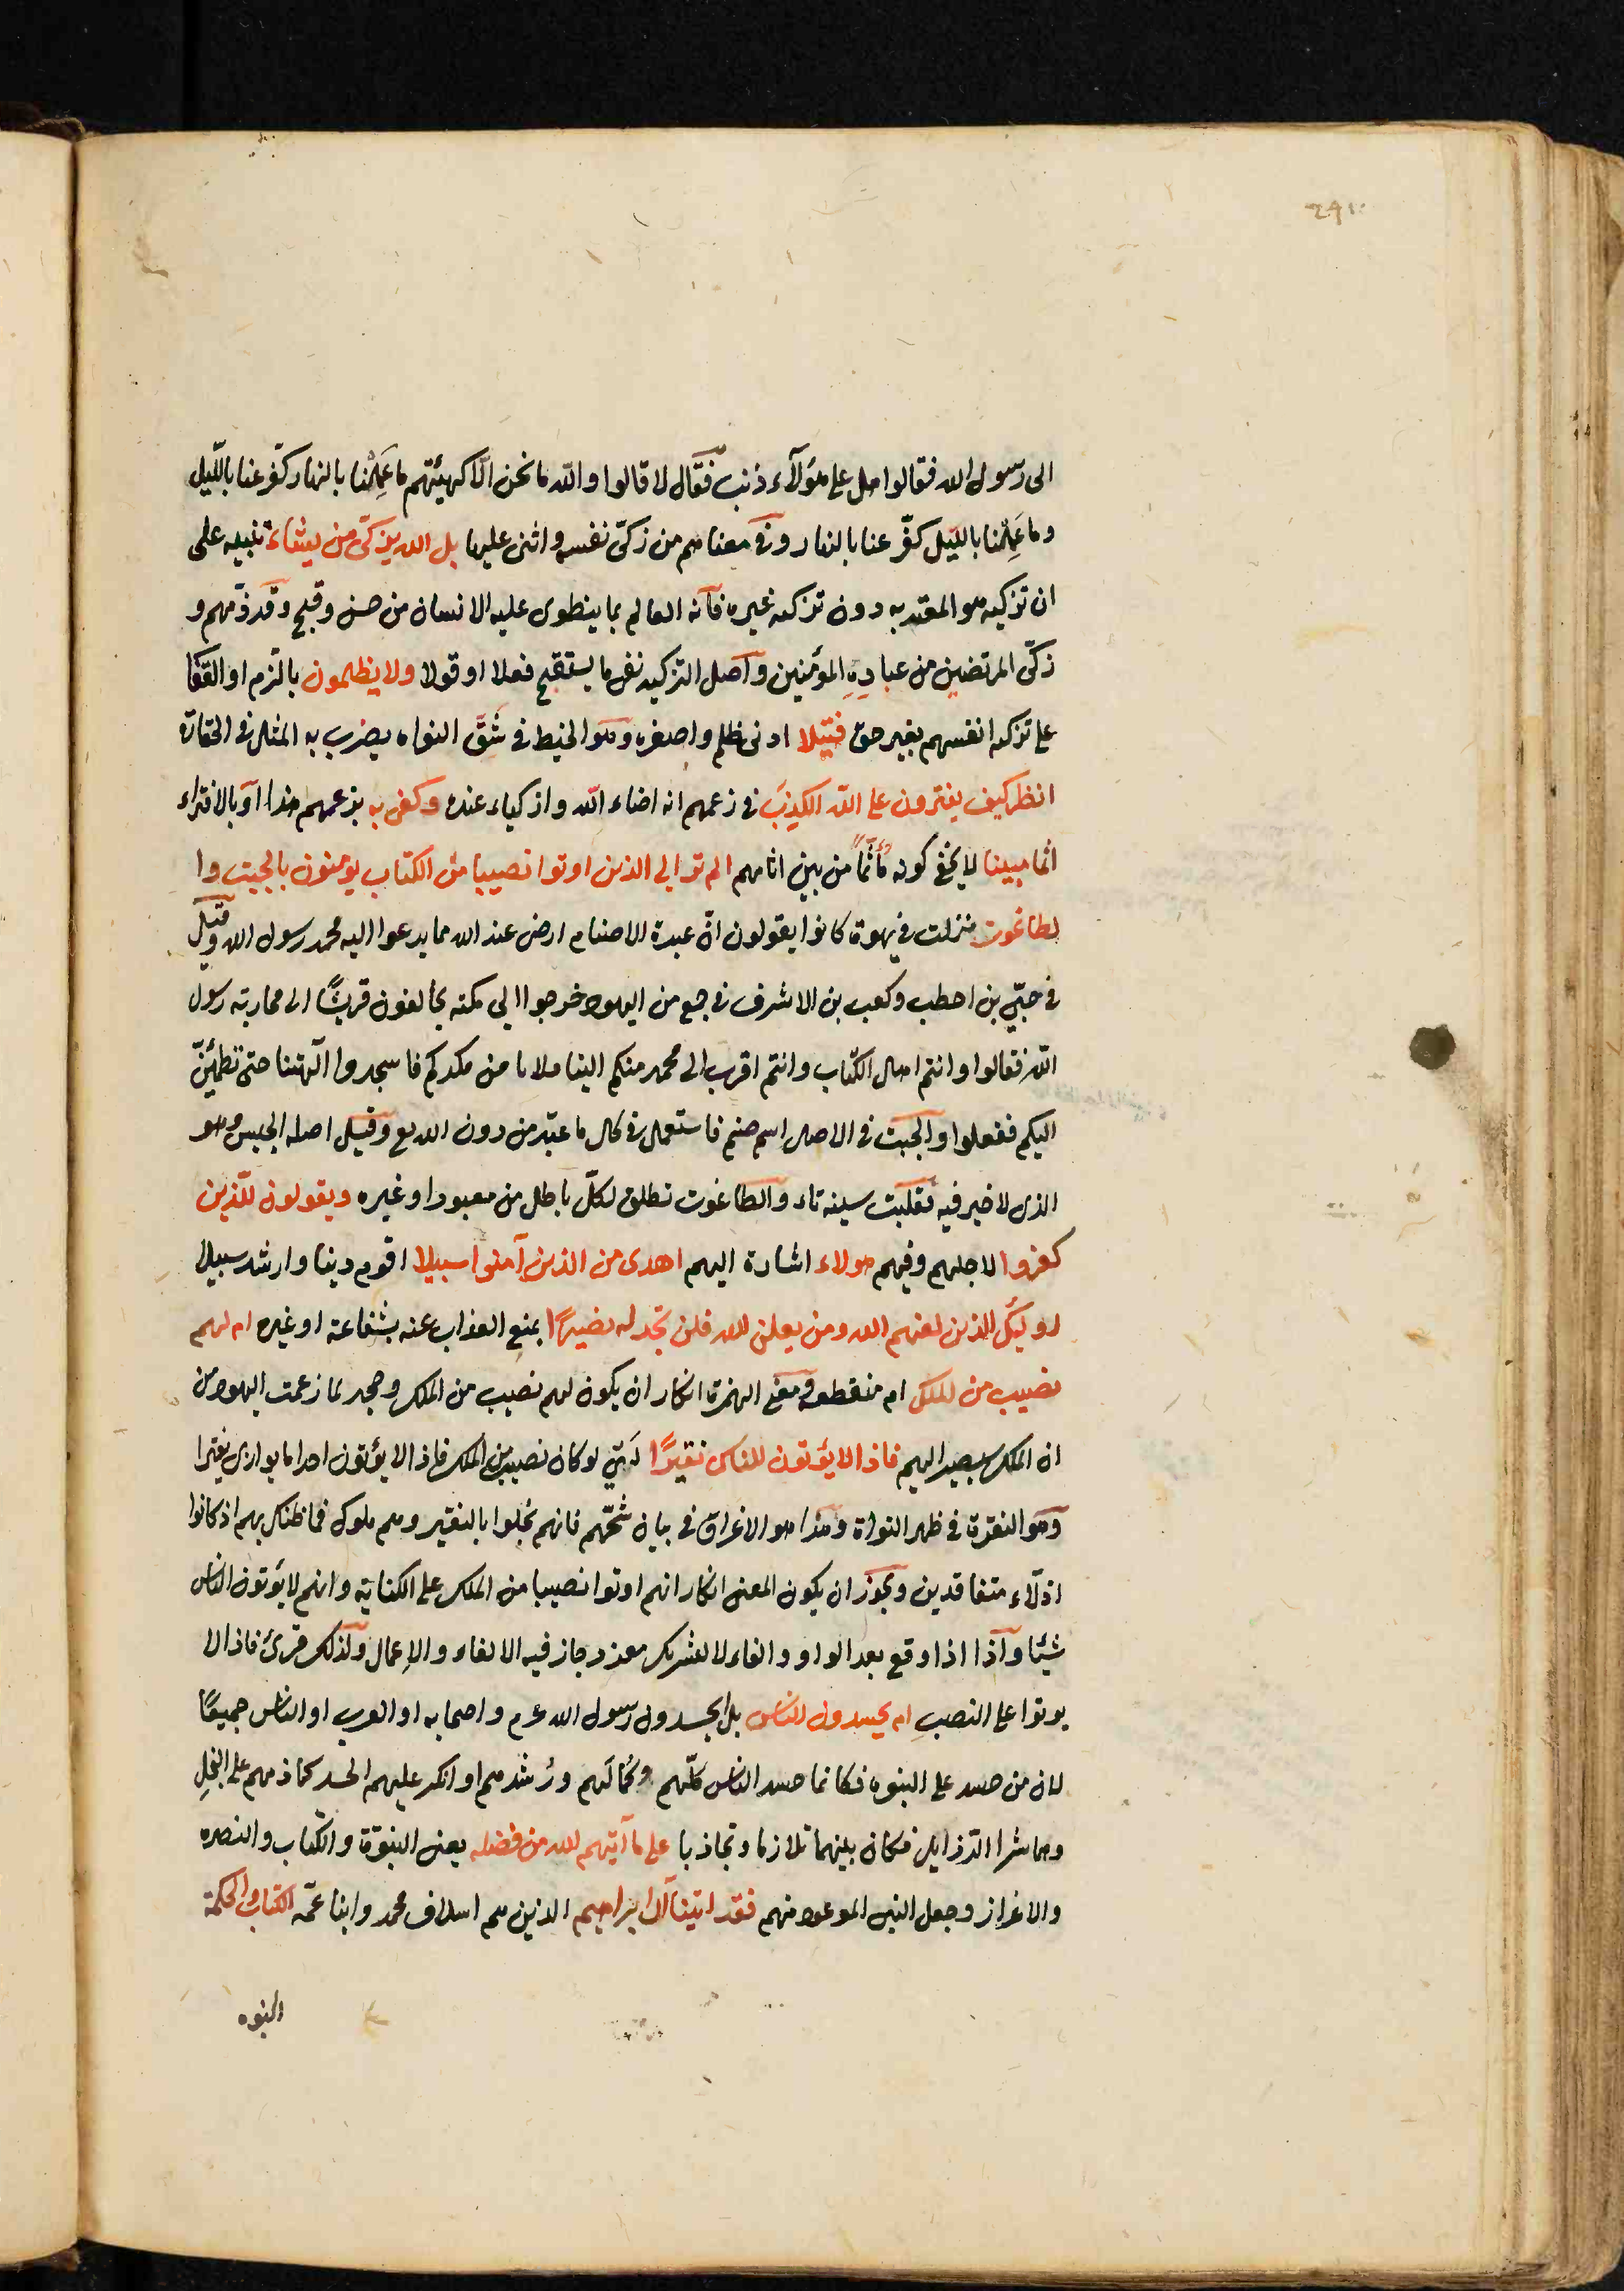 الى رسول الله فقالوا هل على هؤلآء ذنب فقال لا قالوا والله ما نحن الا كهيئتهم ما عَمِلْنا بالنهار كفّر عنا بالليل
وما عَمِلْنا بالليل كفّر عنا بالنهار وفى معناهم من زكّى نفسه واثنى عليها بل الله يزكّى من يشاء تنبيه على
ان تزكيته هو المعتد به دون تزكية غيره فانه العالم بما ينطوى عليه الانسان من حسن وقبح وقد ذمّهم و
زكّى المرتضين من عبادِهِ المؤمنين واصل التزكية نفى ما يستقبح فعلا او قولا ولا يظلمون بالذم او العقاب
على تزكية انفسهم بغير حق فتيلا ادنى ظلم واصغره وهو الخيط فى شَقّ النواه يضرب به المثل فى الحقارة
انظر كيف يفترون على الله الكذِبَ فى زعمهم انه ابناء الله وازكياء عنده وكفى به بزعمهم هذا او بالافتراء
اثما مبينا لا يخفى كونه مأثماً من بين اثامهم الم تر الى الذين اوتوا نصيبا من الكتاب يؤمنون بالجبت وا
لطاغوت نزلت فى يهود كانوا يقولون انّ عبدة الاصنام ارضى عند الله مما يدعوا اليه محمد رسول الله وقيل
فى حيّي بن احطب وكعب بن الاشرف فى جمع من اليهود خرجوا الى مكة يحالفون قريشًا الى محاربة رسول
الله فقالوا وانتم اهل الكتاب وانتم اقرب الى محمد منكم الينا فلا نامن مكركم فاسجدوا الهتنا حتى تطمئنّ
اليكم ففعلوا والجبت فى الاصل اسم صنم فاستعمل فى كل ما عبد من دون الله تع وقيل اصله الجبس وهو
الذى لا خير فيه فقلبت سينه تاء والطاغوت تطلق لكلّ باطل من معبود او غيره ويقولون للّذين
كفروا لاجلهم وفيهم هولاء اشارة اليهم اهدى من الذين آمنوا سبيلا اقوم دينا وارشد سبيلا
اولئك الذين لعنهم الله ومن يعلن الله فلن تجد له نصيرًا بمنع العذاب عنه بشفاعة او غيره ام لهم
نصيب من الملك ام منقطعه ومعنى الهمزة انكار ان يكون لهم نصيب من الملك وجحد لما زعمت اليهود من
ان الملك سيصير اليهم فاذا لا يؤتون الناس نقيرًا اى لو كان نصيب من الملك فاذا لا يؤتون احدا ما يوازى نقيرا
وهو النقرة فى ظهر النواة وهذا هو الاغراق فى بيان شُحّهم فانهم بخلوا بالنقير وهم ملوك فما ظنك بهم اذ كانوا
اذلّاء متفاقدين ويجوز ان يكون المعنى انكار انهم اوتوا نصيبا من الملك على الكناية وانهم لا يؤتون الناس
شيئا واذا اذا وقع بعد الواو والفاء لا لتشريك مفرد جاز فيه الالغاء والإعمال ولذلك قرئ فاذا لا
يوتوا على النصبِ ام يحسدون الناس بل ايحسدون رسول الله عم واصحابه او العرب او الناس جميعًا
لان من حسد على النبوه فكانما حسد الناس كلّهم وكمالَهم ورُشدهم او انكر عليهم الحسد كما ذمهم على البخلِ
وهما شرا الرّذايل فكان بينهما تلازما وتجاذبا على ما آتيهم الله من فضله يعنى النبوّة والكتاب والنصره
والاعزاز وجعل النبى الموعود منهم فقد اتينا آل ابراهيم الذين هم اسلاف محمد وابنا عمّه الكتاب والحكمة
النبوه